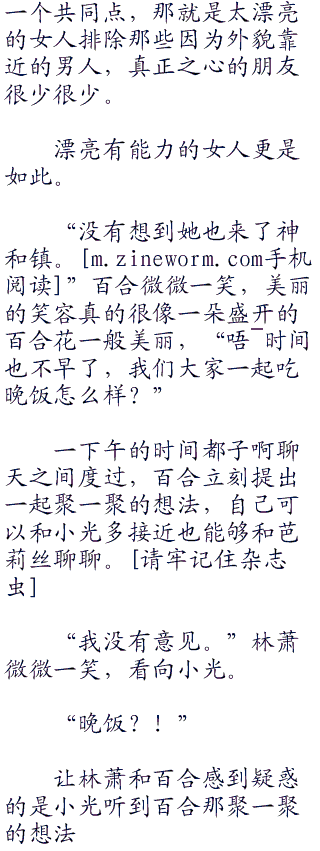 一个共同点，那就是太漂亮
的女人排除那些因为外貌靠
近的男人，真正之心的朋友
很少很少。
漂亮有能力的女人更是
如此。
“没有想到她也来了神
和镇。[m.zineworm.com手机
阅读]”百合微微一笑，美丽
的笑容真的很像一朵盛开的
百合花一般美丽，“唔¯时间
也不早了，我们大家一起吃
晚饭怎么样？”
一下午的时间都子啊聊
天之间度过，百合立刻提出
一起聚一聚的想法，自己可
以和小光多接近也能够和芭
莉丝聊聊。[请牢记住杂志
虫]
“我没有意见。”林萧
微微一笑，看向小光。
“晚饭？！”
让林萧和百合感到疑惑
的是小光听到百合那聚一聚
的想法